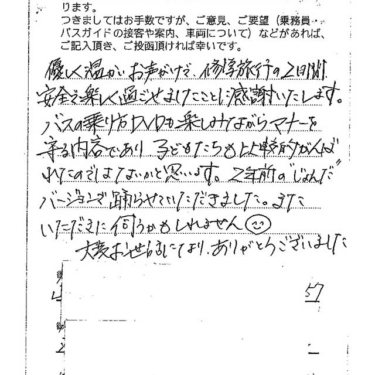 ります。
つきましてはお手数ですが、ご意見、ご要望（乗務員・
バスガイドの接客や案内、車両について）などがあれば、
ご記入頂き、ご投函頂ければ幸いです。
優しく温かいお声がけで、修学旅行の2日間
安全で楽しく過ごせましたことに感謝いたします。
バスの乗り方DVDも楽しみながらマナーを
守る内容であり、子どもたちも比較的がんば
れたのではないかと思います。2年前の"じゃんだ"
バージョンで踊らせていただきました。また
いただきに伺うかもしれません
大変お世話になり、ありがとうございました
57